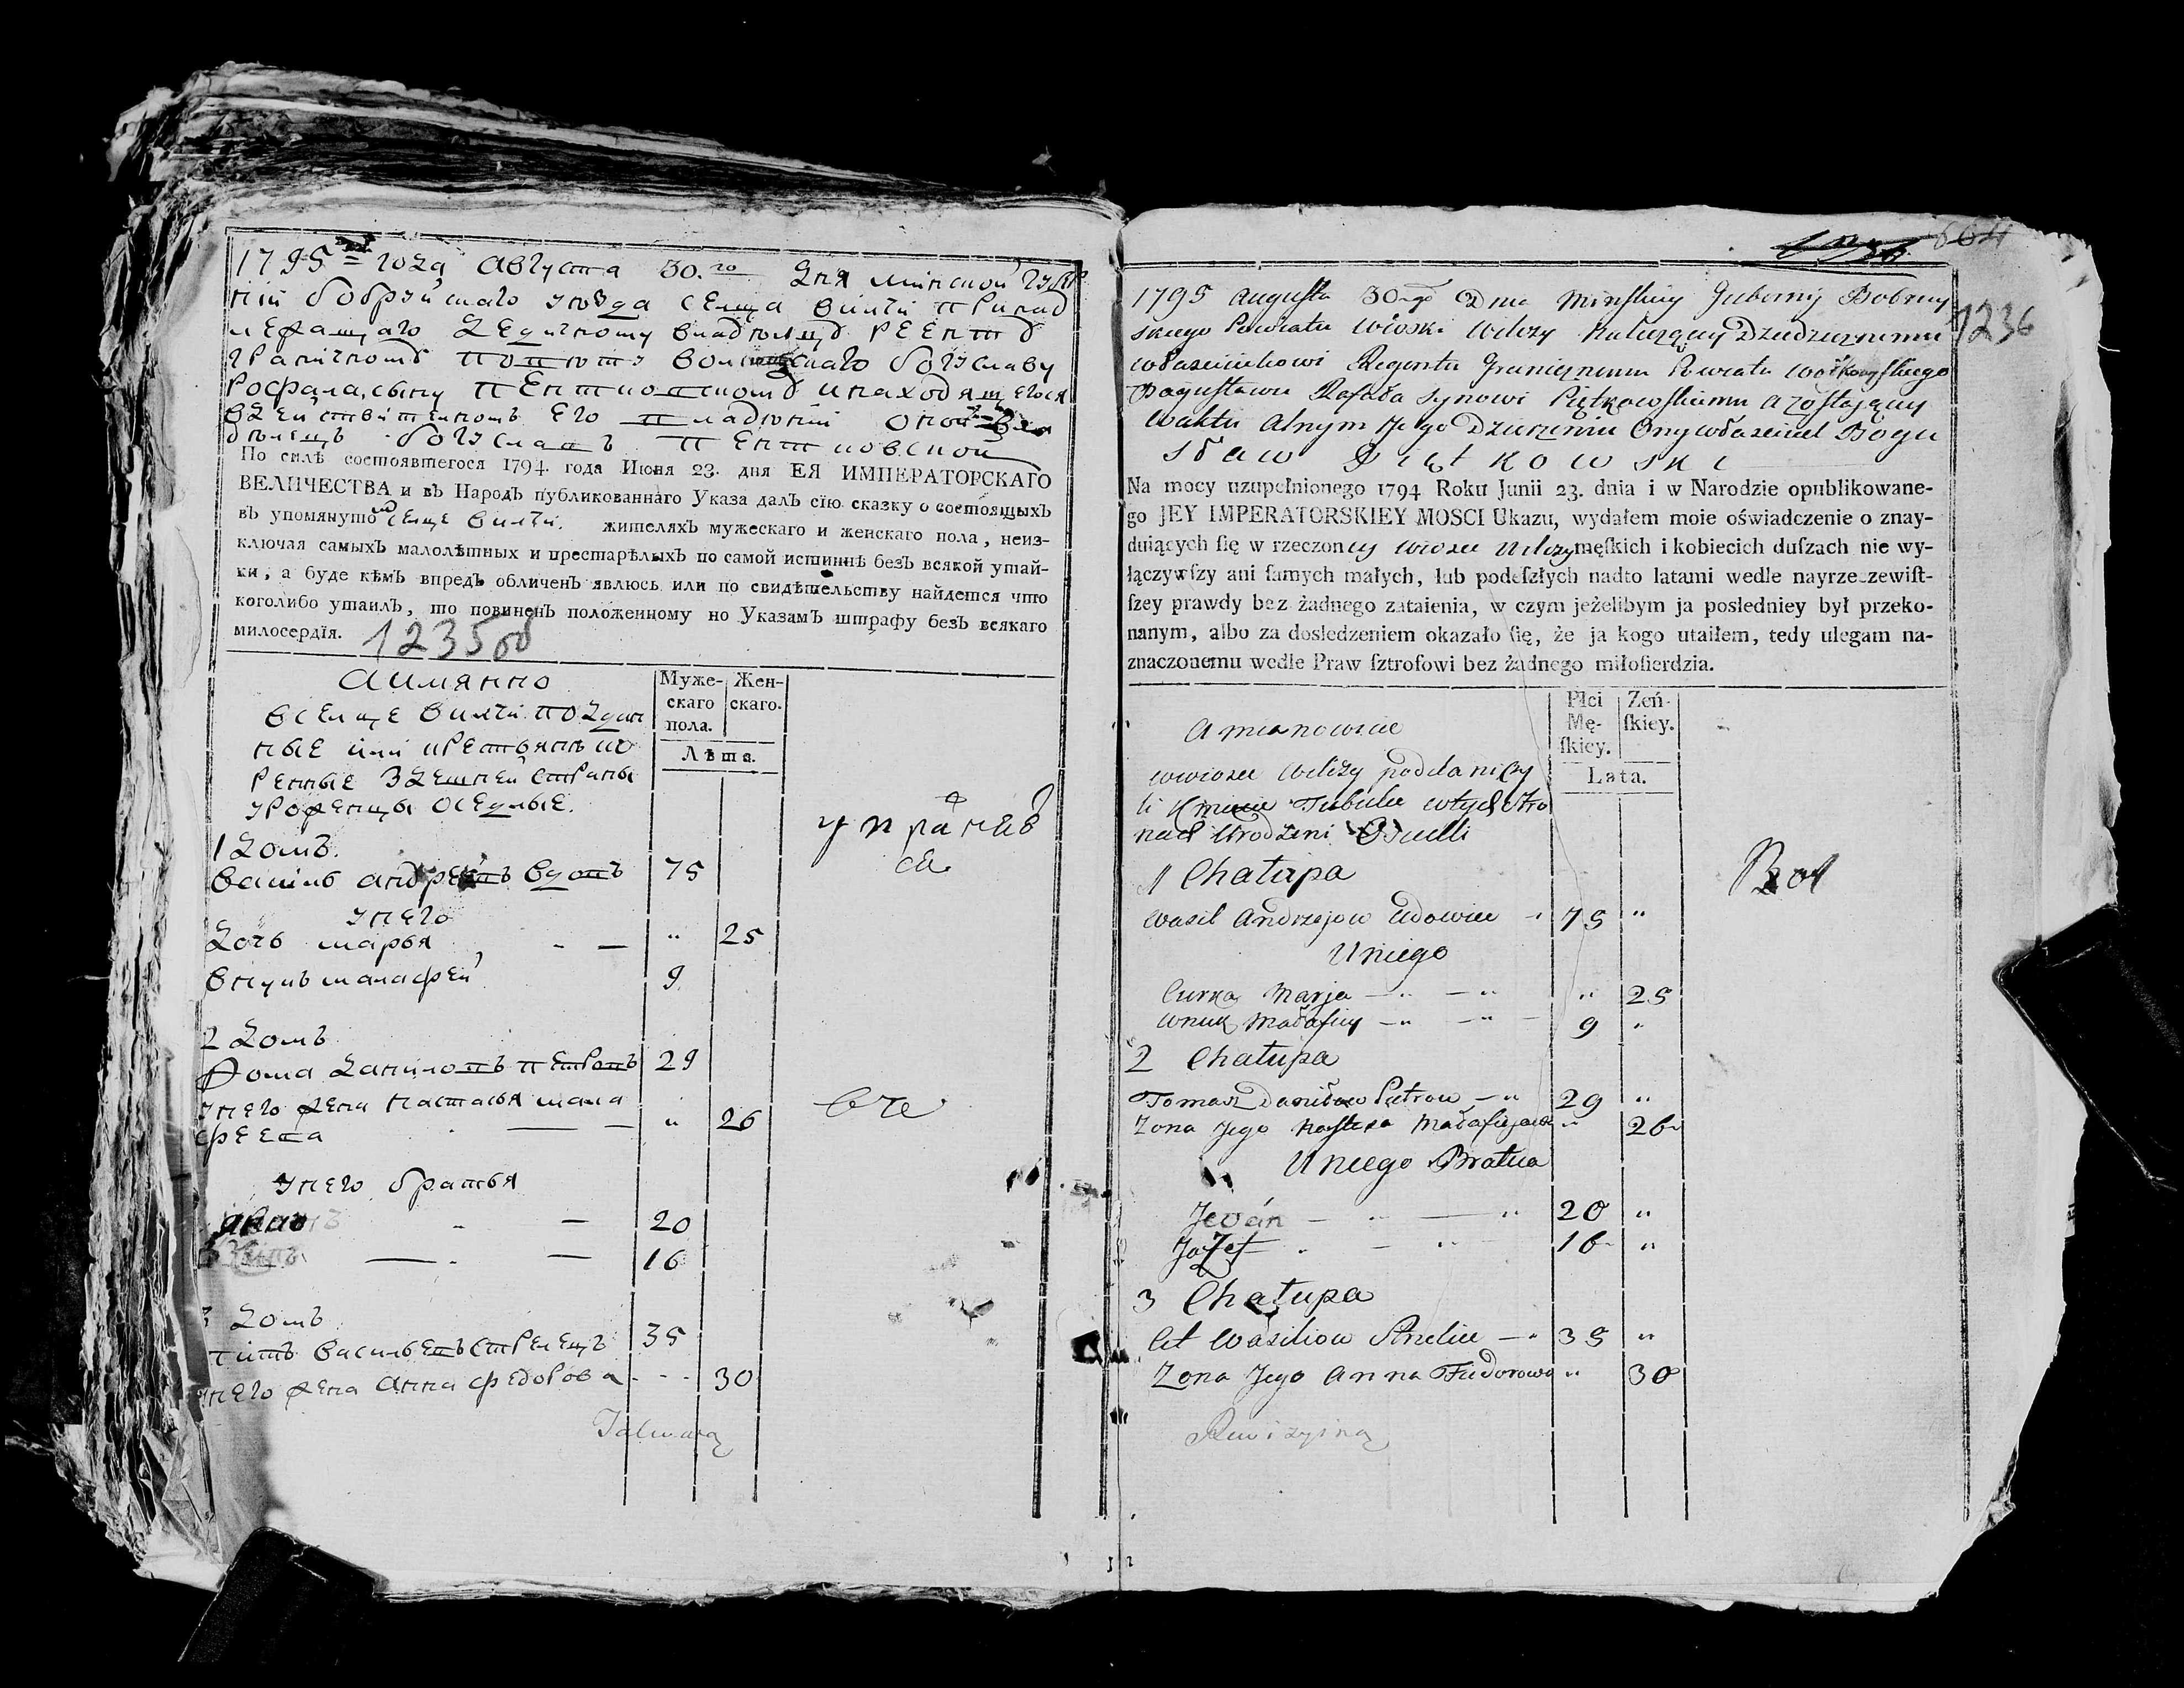 1795 = года августа 30.го дня минской губер
нiи бобруйскаго уѣзда селца вилчи принад
лежащаго дедичному владѣлцу реент
граничномъ поветъ волковыскаго богуславу
рофала, сыну пентковскому и находящегося
вдействителномъ его владѣнiи оной вла
дѣлецъ богуславъ пентковской
По силѣ состоявшегося 1794. года Июня 23. дня ЕЯ ИМПЕРАТОРСКАГО
ВЕЛИЧЕСТВА и въ Народъ публикованнаго Указа далъ сїю сказку о состоящыхъ
въ упомянуто селце вилчи. жителяхъ мужескаго и женскаго пола, неиз-
ключая самыхъ малолѣтныхъ и престарѣлыхъ по самой истиннѣ безъ всякой утай-
ки, а буде кѣмъ впредь обличенъ явлюсь или по свидѣтельству найдется что
коголибо утаилъ, то повиненъ положенному по Указамъ штрафу безъ всякаго
милосердїя. 1235
аимянно
Муже-
скаго
пола.
Жен-
скаго.
Лѣта.
вселце вилчи подан
ные или крестьяне ко
ренные здешней страны
уроженцы оседлые.
1 домъ.
василь андреевъ вдовъ 75
унего
дочь марья - — " 25
внукъ малафей 9
2 домъ
Фома даниловъ петровъ 29
унего жена настасья мала
феева — " 26
унего братья
иванъ - — 20
— — 16
3 домъ
титъ васильевъ стрелецъ 35
унего жена анна федорова - - - 30
1236
1795 Augusta 30-go Dnia Minskiey Gubernij Bobruy
skiego Powiatu wioski Wilczy Należącey Dziedzicznemu
właścicielowi Regentu Granicznemu Powiatu Wołkowyskiego
Bogusławu Rafała synowi Piętkowskiemu a zostającey
waktu alnym Jego Dzierzeniu Ony właściciel Bogu
sław Piętkowski
Na mocy uzupełnionego 1794 Roku Junii 23. dnia i w Narodzie opublikowane-
go JEY IMPERATORSKIEY MOSCI Ukazu, wydałem moie oświadczenie o znay-
duiących ſię w rzeczoney wiosce Wilczy męſkich i kobiecich duſzach nie wy-
łączywſzy ani ſamych małych, lub podeſzłych nadto latami wedle nayrzeczewiſt-
ſzey prawdy bez żadnego zataienia, w czym jeżelibym ja posledniey był przeko-
nanym, albo za dosledzeniem okazało ſię, że ja kogo utaiłem, tedy ulegam na-
znaczonemu wedle Praw ſztrofowi bez żadnego miłoſierdzia.
Płci
Mę-
ſkiey.
Zeń-
ſkiey.
Lata.
a mianowicie
wwiosce Wilczy poddani czy
li Kmiecie Tubulce wtych stro
nach Urodzeni Osiedli
1 Chałupa
Wasil Andrzejow Wdowiec 75 "
Uniego
Curka Marja " 25
Wnuk Małafiey 9 "
2 Chałupa
Tomasz Daniłow Pietrow 29 "
Zona Jego Nastazia Małafiejowa " 26
Uniego Bratia
Jewan 20 "
Jozef 16 "
3 Chałupa
Wasiliow 35 "
Zona Jego Anna Fiedorowa " 30
Rewizyina